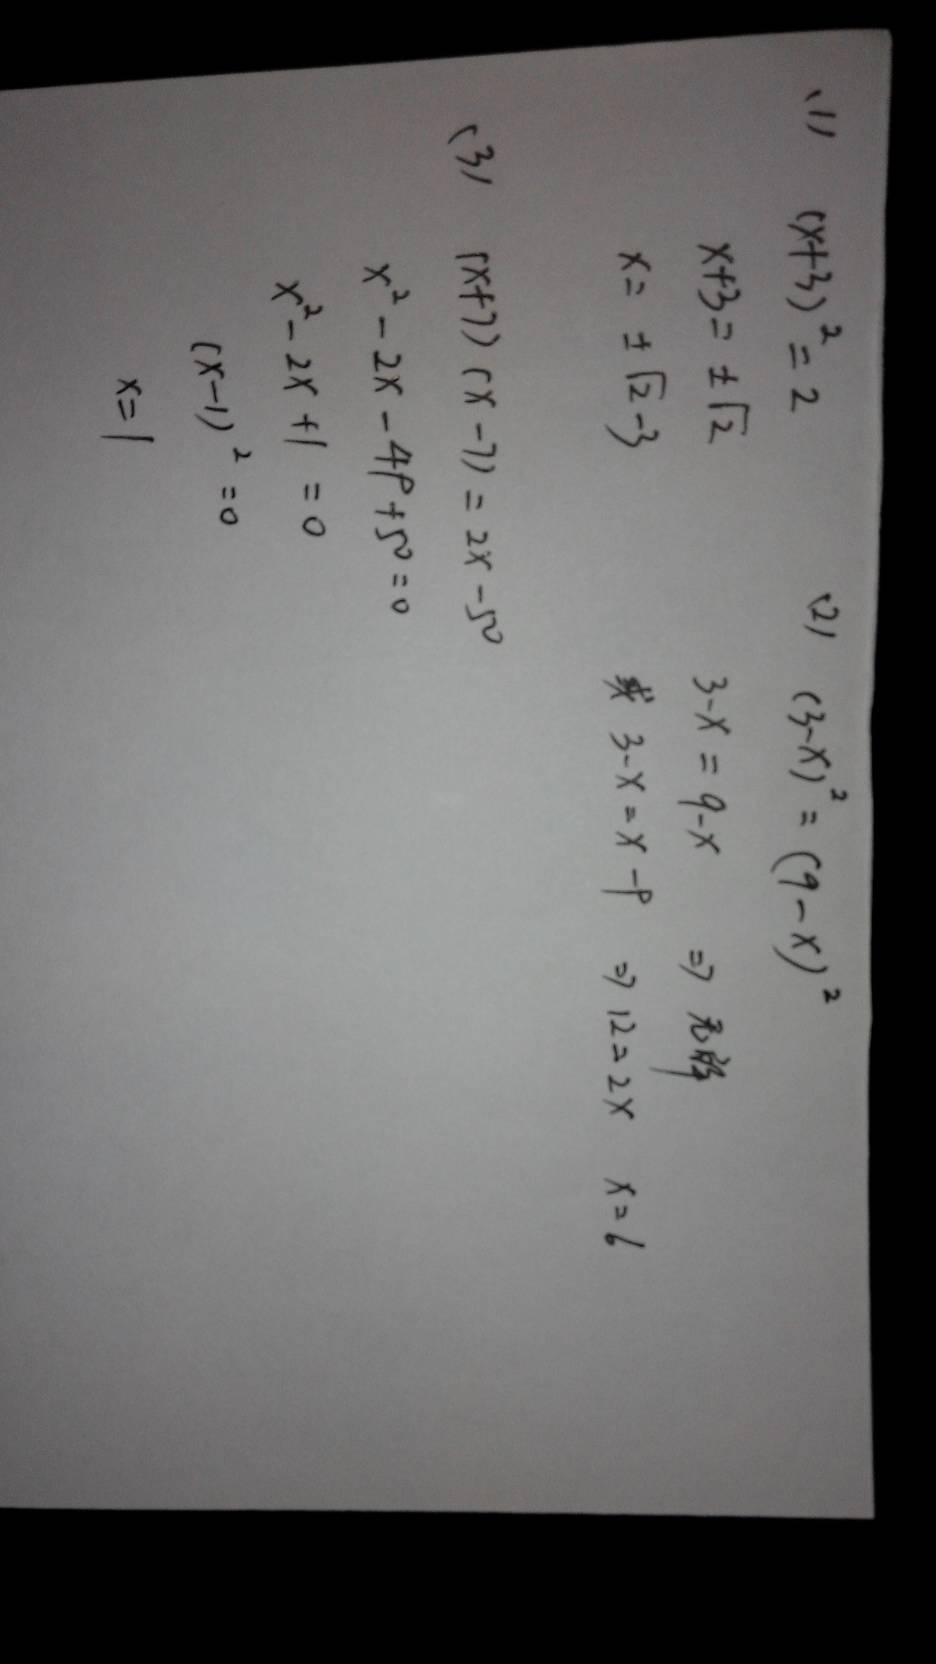 (1) (x+3)² = 2
x+3 = ±√2
x = ±√2-3
(2) (3-x)² = (9-x)²
3-x = 9-x ⇒ 无解
或 3-x = x-9 ⇒ 12 = 2x x=6
(3) (x+7)(x-7) = 2x-50
x²-2x-49+50=0
x²-2x+1 = 0
(x-1)² = 0
x=1